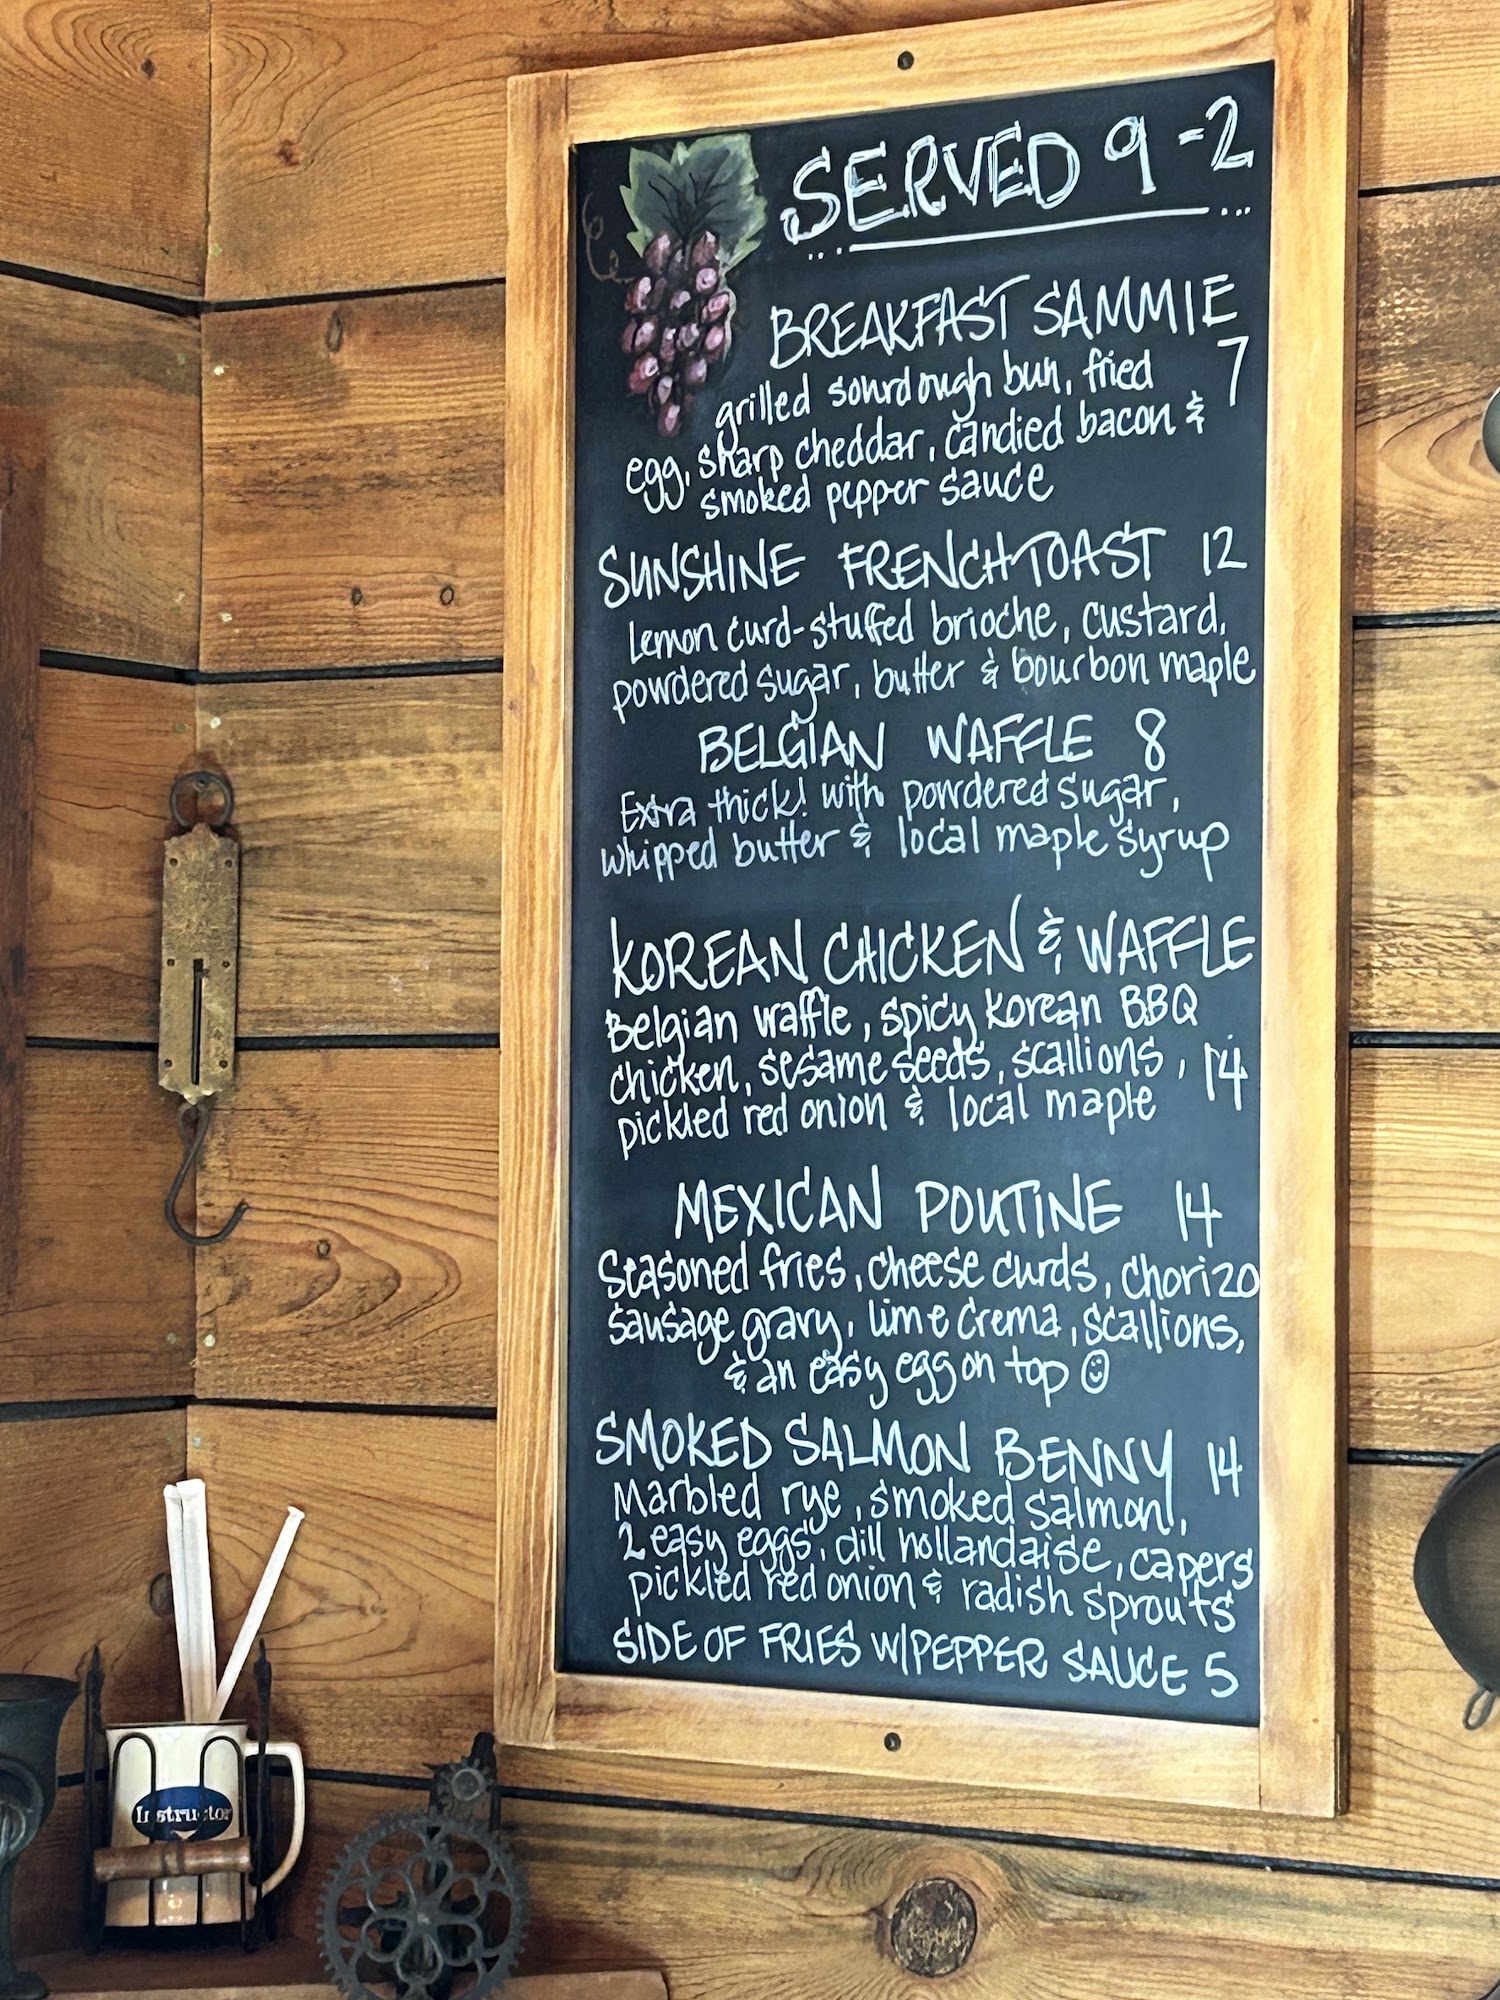 SERVED 9-2
BREAKFAST SAMMIE
grilled sourdough bun, fried 7
egg, sharp cheddar, candied bacon &
smoked pepper sauce
SUNSHINE FRENCH TOAST 12
Lemon curd-stuffed brioche, custard,
powdered sugar, butter & bourbon maple
BELGIAN WAFFLE 8
Extra thick! with powdered sugar,
whipped butter & local maple syrup
KOREAN CHICKEN & WAFFLE
Belgian waffle, spicy Korean BBQ
chicken, sesame seeds, scallions, 14
pickled red onion & local maple
MEXICAN POUTINE 14
Seasoned fries, cheese curds, chorizo
sausage gravy, lime crema, scallions,
& an easy egg on top ☺
SMOKED SALMON BENNY 14
Marbled rye, smoked salmon,
2 easy eggs, dill hollandaise, capers
pickled red onion & radish sprouts
SIDE OF FRIES W/PEPPER SAUCE 5
Instructor